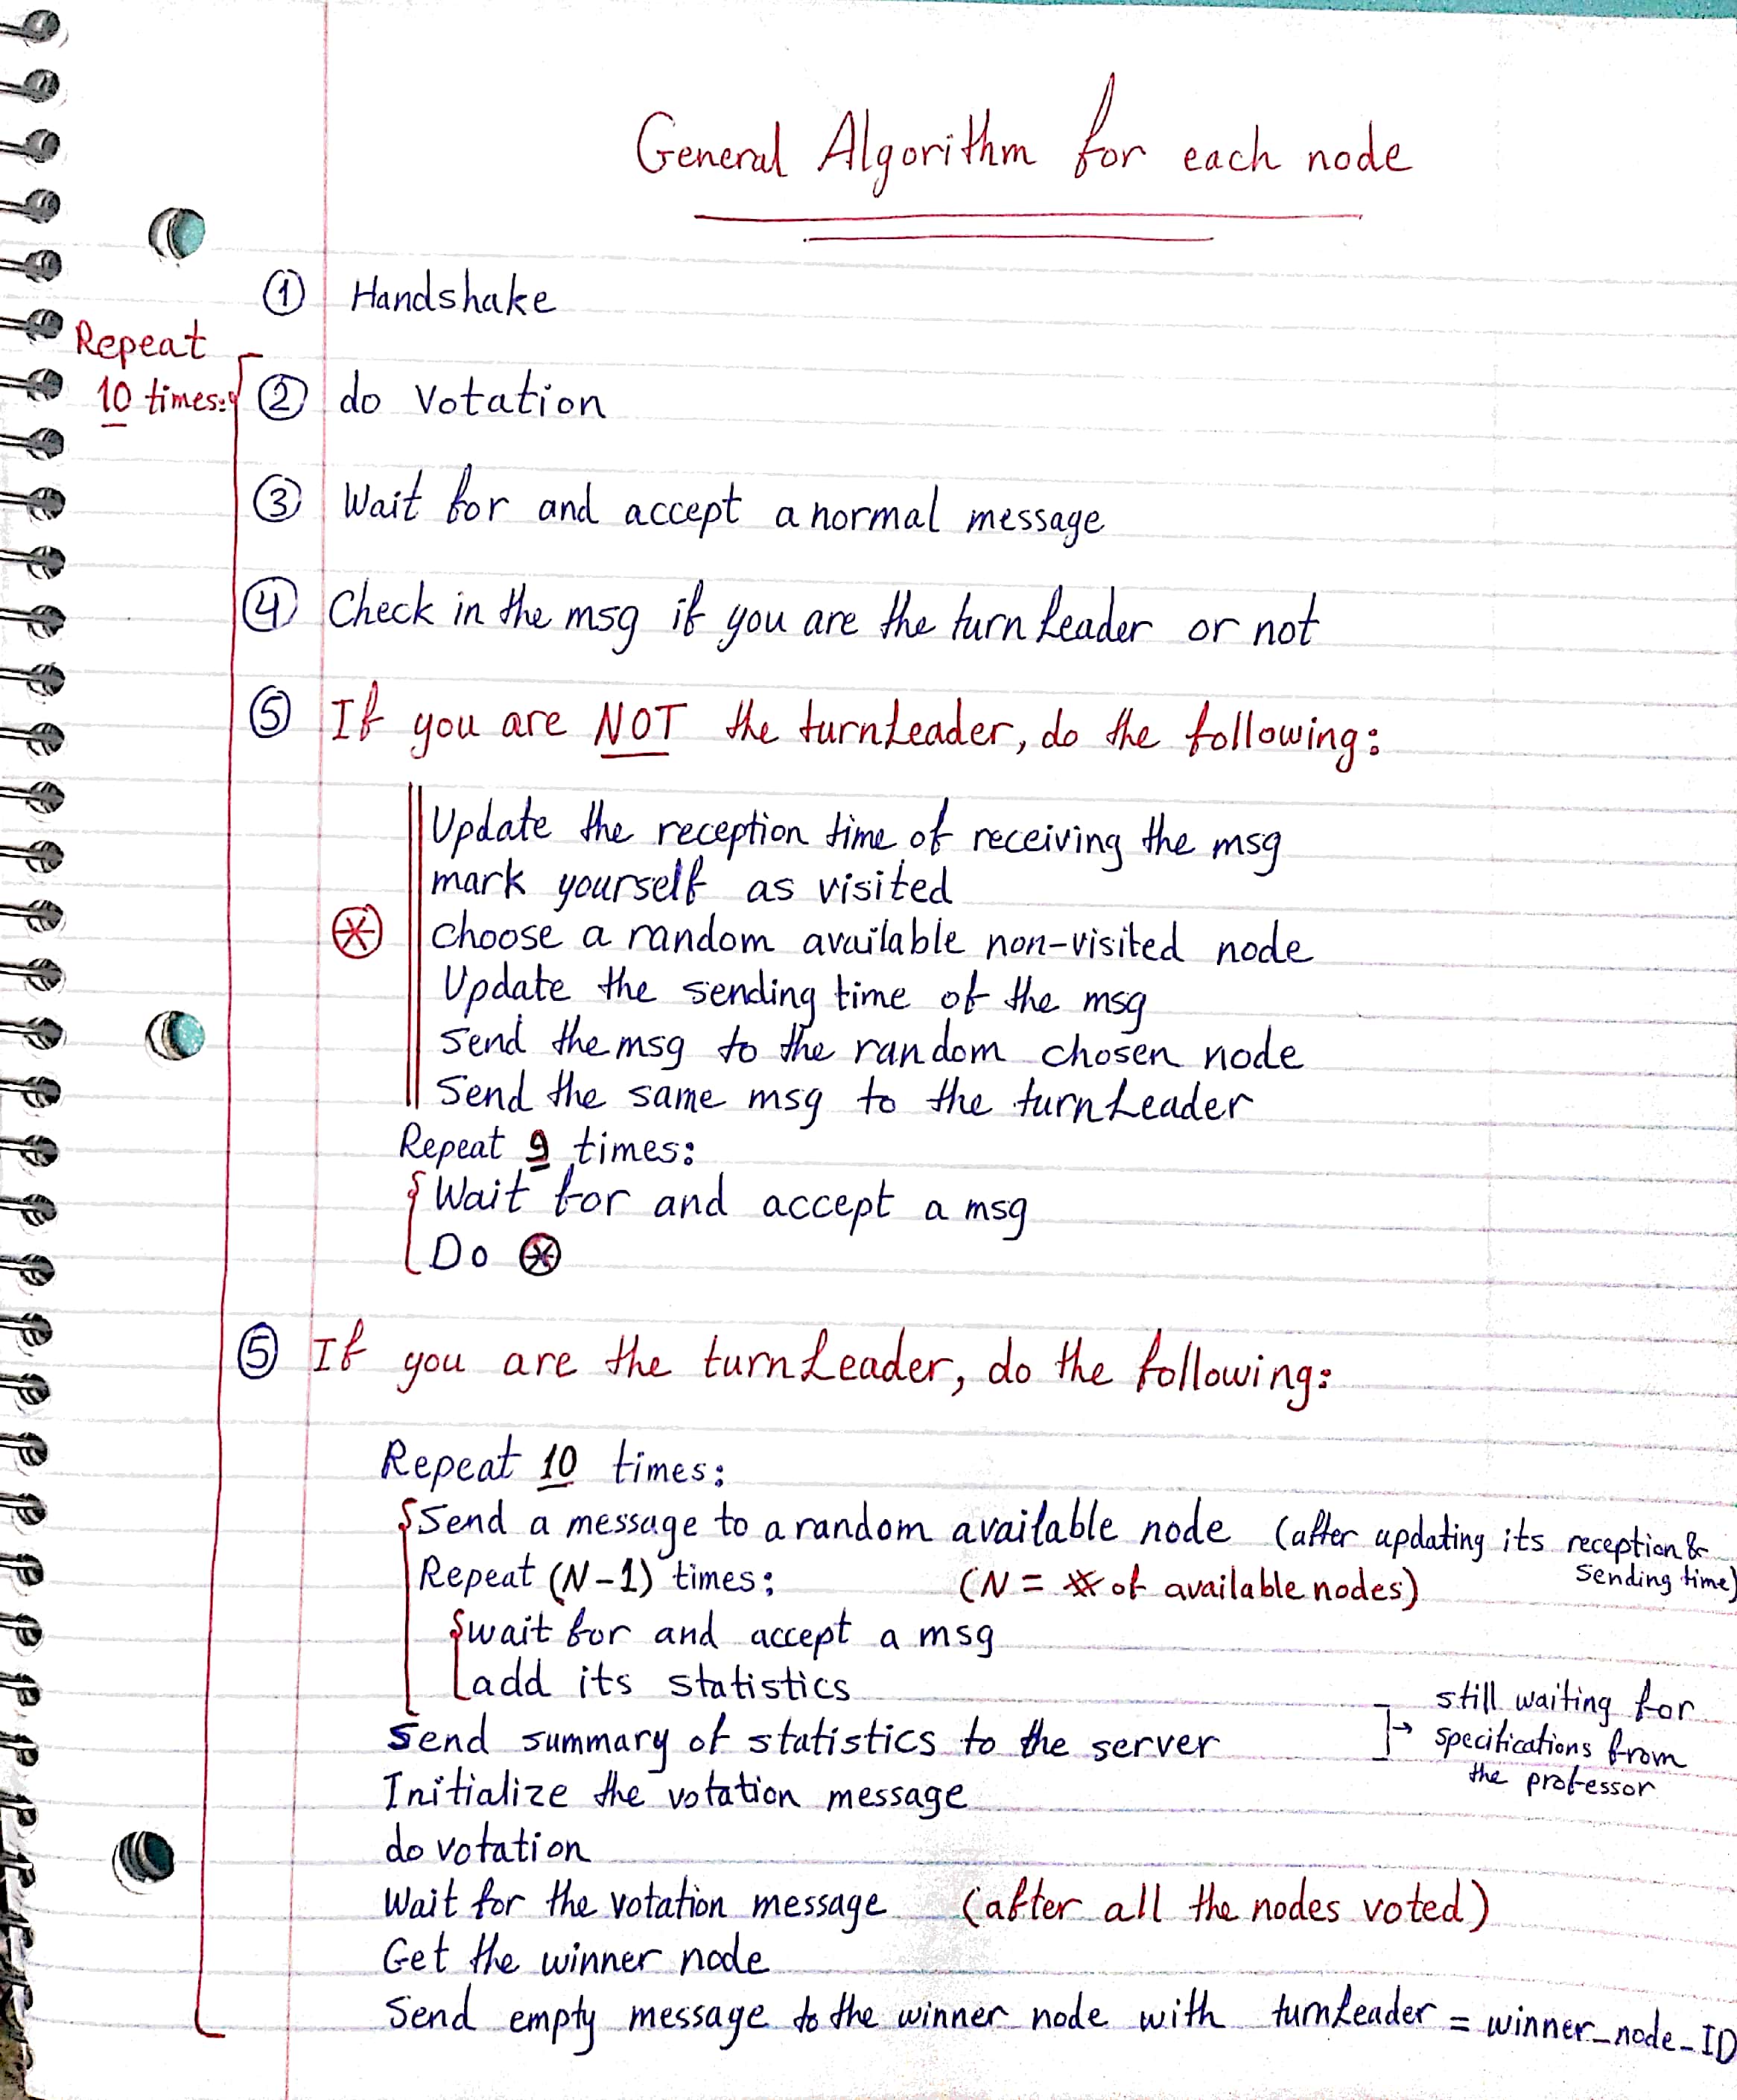 General Algorithm for each node
① Handshake
Repeat
10 times:
② do votation
③ Wait for and accept a normal message
④ Check in the msg if you are the turnLeader or not
⑤ If you are NOT the turnLeader, do the following:
Update the reception time of receiving the msg
mark yourself as visited
⊛ choose a random available non-visited node
Update the sending time of the msg
Send the msg to the random chosen node
Send the same msg to the turnLeader
Repeat 9 times:
Wait for and accept a msg
Do ⊛
⑤ If you are the turnLeader, do the following:
Repeat 10 times:
Send a message to a random available node (after updating its reception &
sending time)
Repeat (N-1) times: (N = # of available nodes)
wait for and accept a msg
add its statistics
Send summary of statistics to the server
still waiting for
specifications from
the professor
Initialize the votation message
do votation
Wait for the votation message (after all the nodes voted)
Get the winner node
Send empty message to the winner node with turnLeader = winner_node_ID